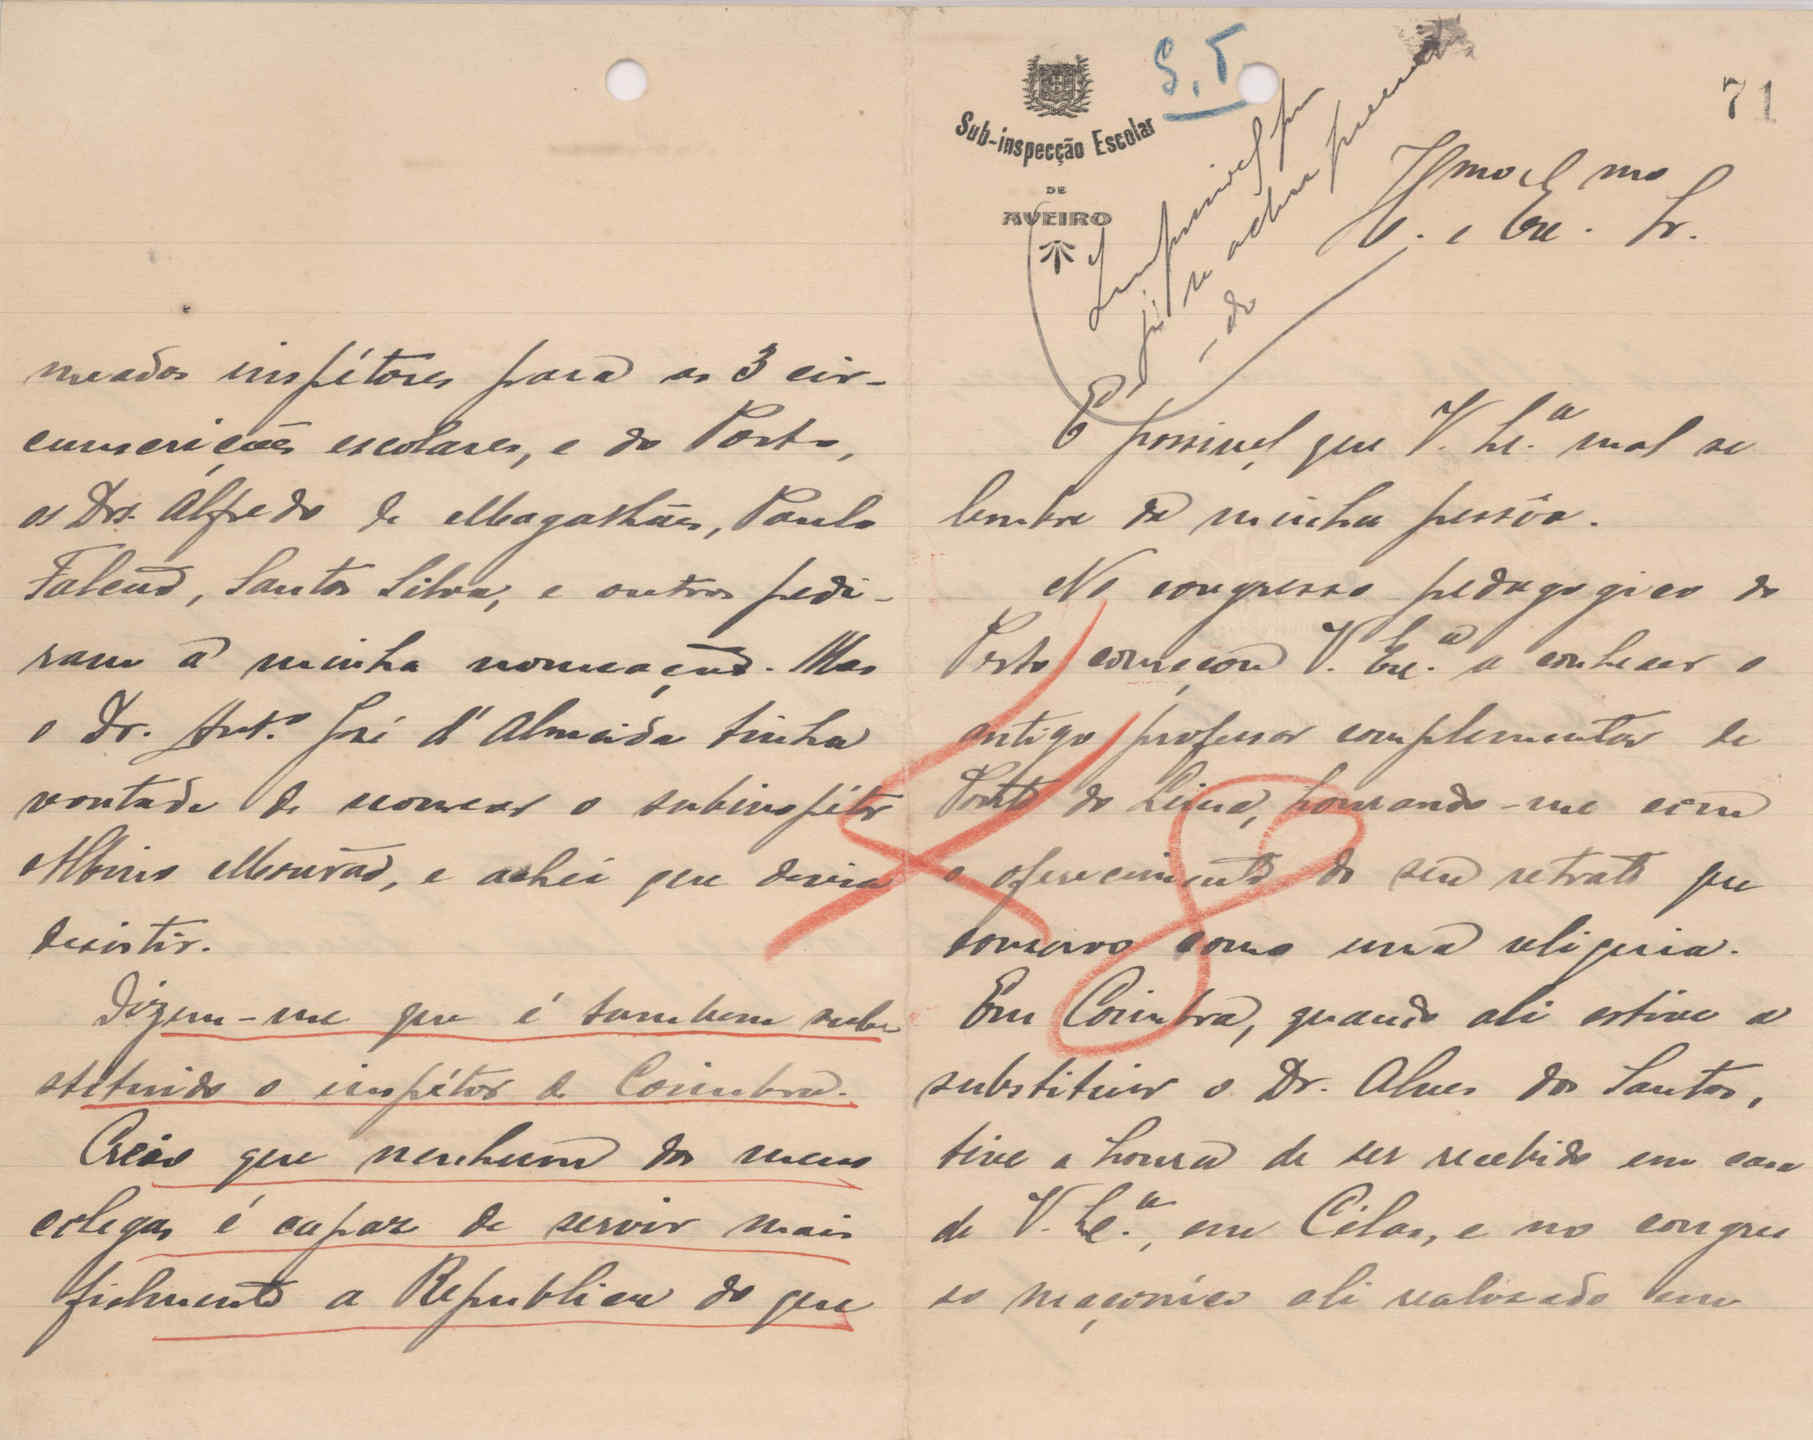 meados inspétores para as 3 cir-
cunscrições escolares, e do Porto,
os Drs. Alfredo de Magalhães, Paulo
Falcão, Santos Silva, e outros pedi-
ram a minha nomeação. Mas
o Dr. Antº José d'Almeida tinha
vontade de nomear o subinspétor
Albino Mourão, e achei que devia
desistir.
Dizem-me que é tambem sub-
stituido o inspétor de Coimbra.
Creio que nenhum dos meus
colegas é capaz de servir mais
fielmente a Republica do que
S. T.
71
Sub-inspecção Escolar
DE
AVEIRO
já se acha preenchi
-do
Ilmo e Exmo
Sr.
É possivel que V. Ex.ª mal se
lembre da minha pessôa.
No congresso pedagogico do
Porto começou V. Exc.ª a conhecer o
antigo professor complementar de
Ponte do Lima, honrando-me com
o oferecimento do seu retrato que
conservo como uma reliquia.
Em Coimbra, quando ali estive a
substituir o Dr. Alves dos Santos,
tive a honra de ser recebido em casa
de V. Ex.ª, em Célas, e no congres
so maçonico ali realisado em
48